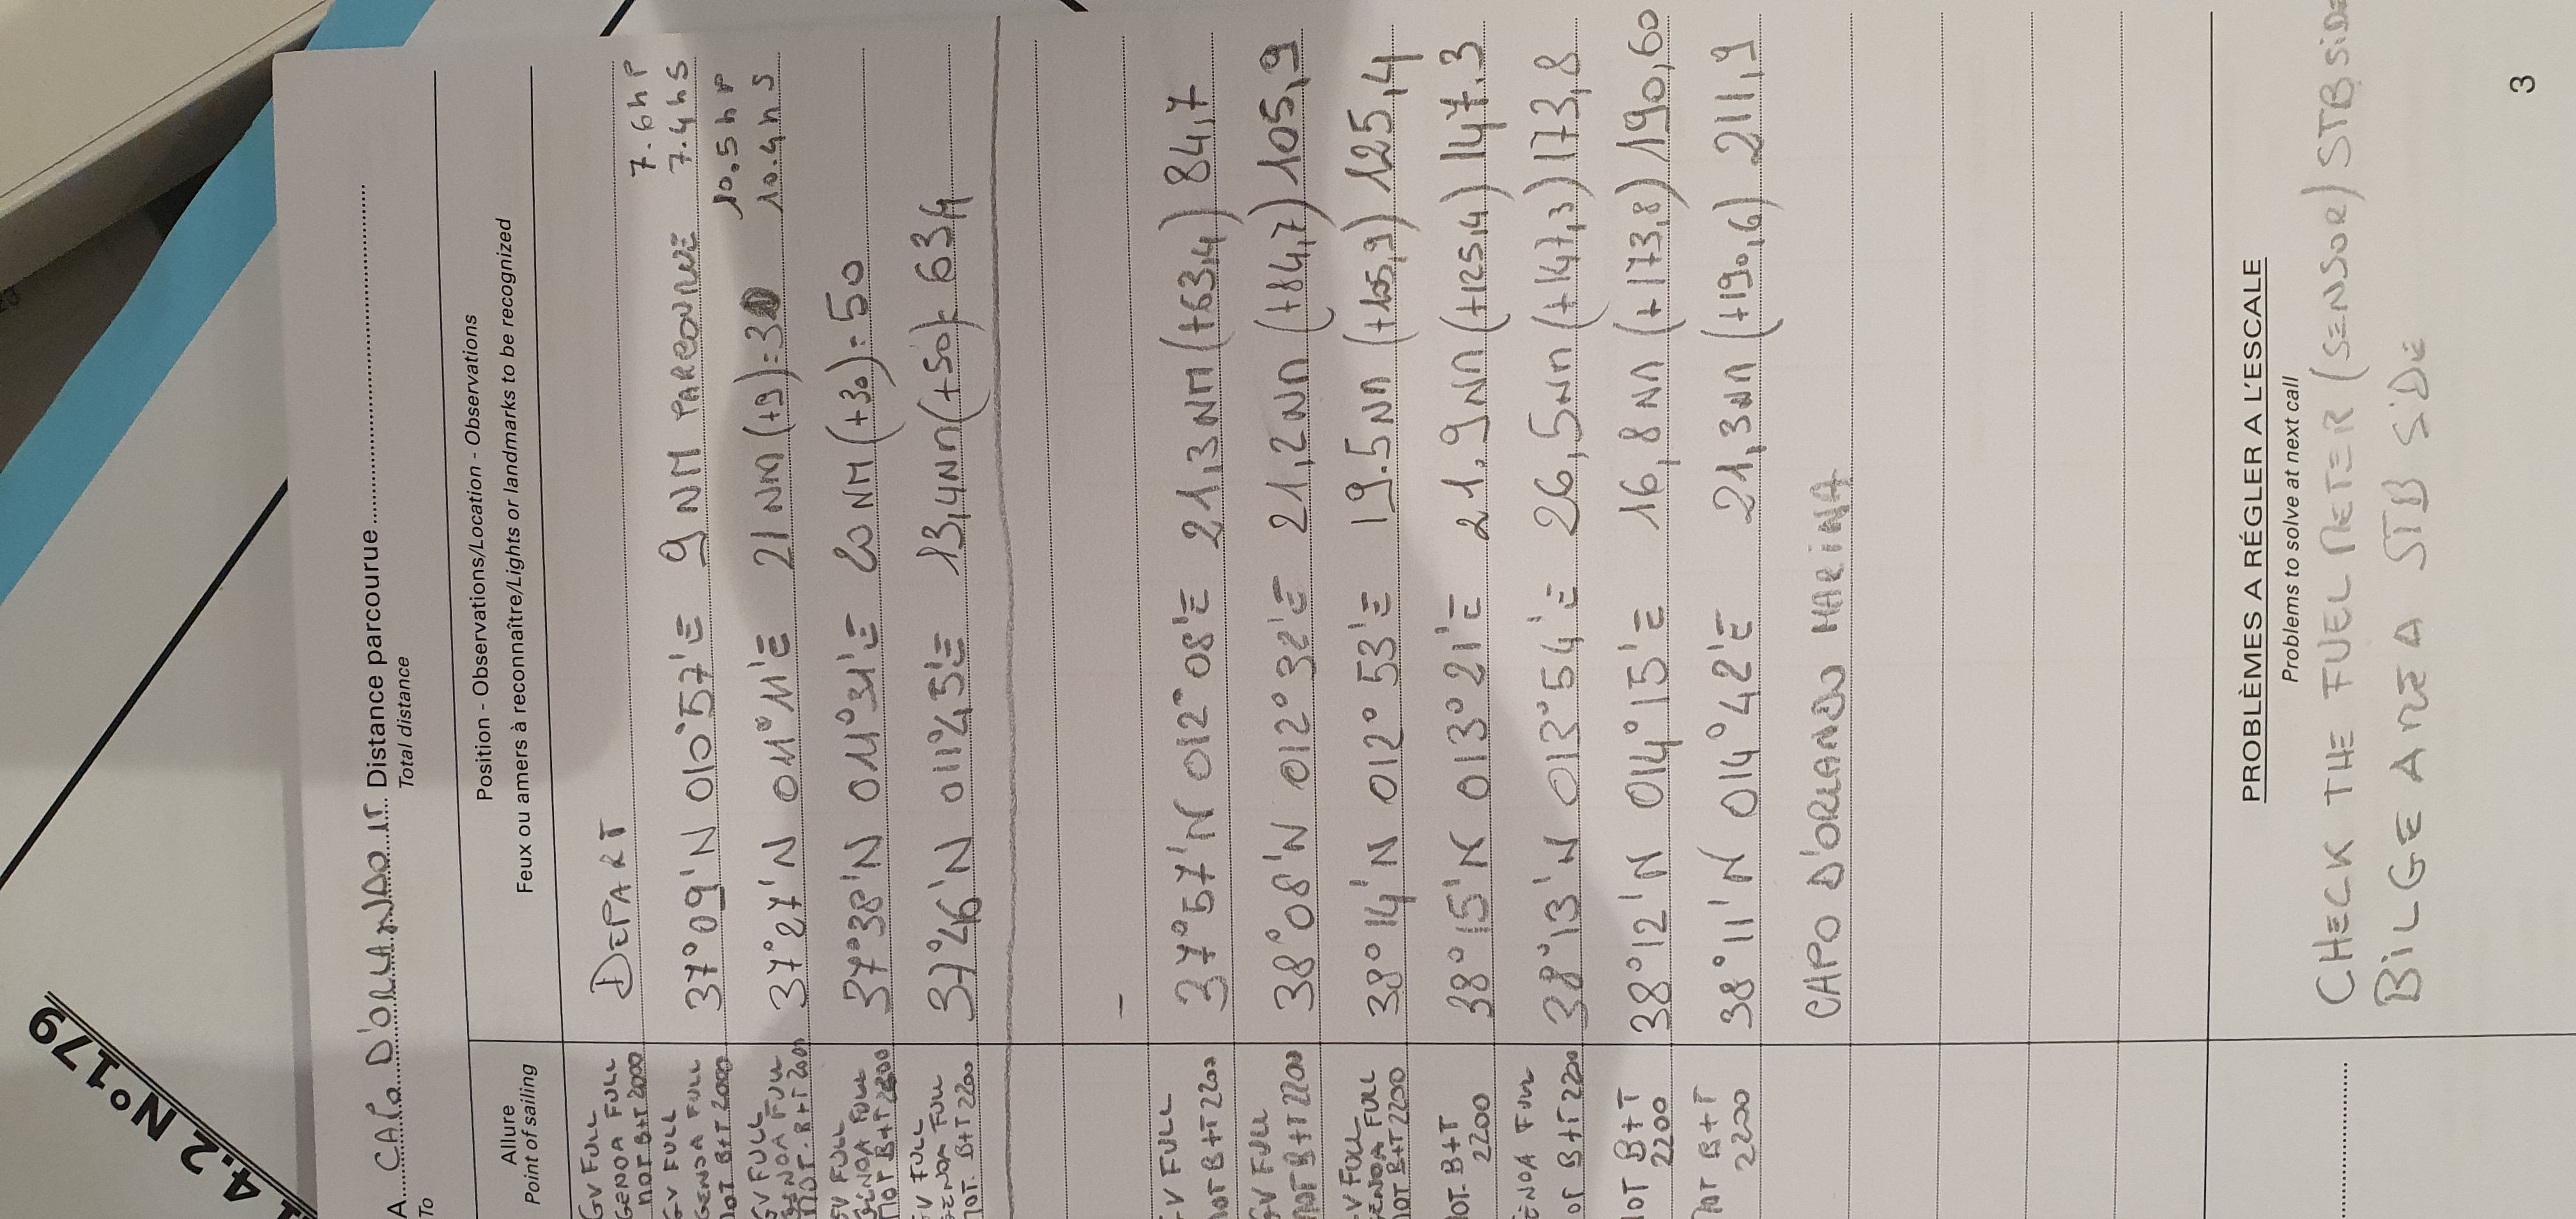 4.2 N°179
A CAPO D'ORLANDO IT Distance parcourue
To Total distance
Allure
Point of sailing
Position - Observations/Location - Observations
Feux ou amers à reconnaître/Lights or landmarks to be recognized
GV FULL
GENOA FULL
MOT B+T 2000
DEPART
7.6 h P
7.4 h S
GV FULL
GENOA FULL
MOT B+T 2000
37°09'N 010°57'E 9 NM PARCOURUE
10.5 h P
10.4 h S
GV FULL
GENOA FULL
MOT. B+T
37°27'N 011°11'E 21 NM (+9) = 30
GV FULL
GENOA FULL
MOT B+T 2200
37°38'N 011°31'E 20 NM (+30) = 50
GV FULL
GENOA FULL
MOT. B+T 2200
37°46'N 011°45'E 13,4 NM (+50) 63,4
-
GV FULL
MOT B+T 2200
37°57'N 012°08'E 21,3 NM (+63,4) 84,7
GV FULL
MOT B+T 2200
38°08'N 012°32'E 21,2 NM (+84,7) 105,9
GV FULL
GENOA FULL
MOT B+T 2200
38°14'N 012°53'E 19.5 NM (+105,9) 125,4
MOT. B+T
2200
38°15'N 013°21'E 21.9 NM (+125,4) 147.3
GENOA FULL
MOT B+T 2200
38°13'N 013°54'E 26,5 NM (+147,3) 173,8
MOT B+T
2200
38°12'N 014°15'E 16,8 NM (+173,8) 190,60
MOT B+T
2200
38°11'N 014°42'E 21,3 NM (+190,6) 211,9
CAPO D'ORLANDO MARINA
PROBLÈMES A RÉGLER A L'ESCALE
Problems to solve at next call
CHECK THE FUEL METER (SENSOR) STB SIDE
BILGE AREA STB SIDE
3